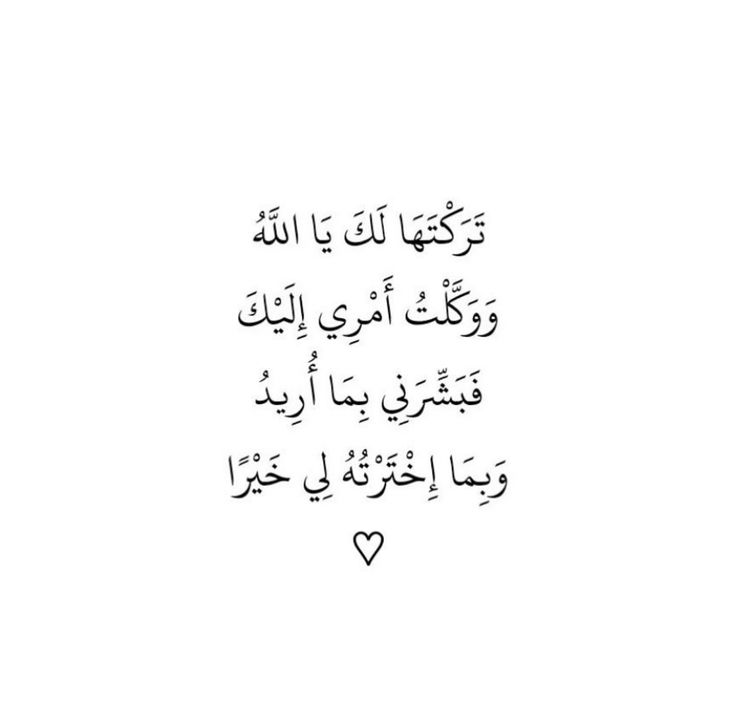 تَرَكْتَهَا لَكَ يَا اللَّهُ
وَوَكَّلْتُ أَمْرِي إِلَيْكَ
فَبَشِّرَنِي بِمَا أُرِيدُ
وَبِمَا إِخْتَرْتُهُ لِي خَيْرًا
♡